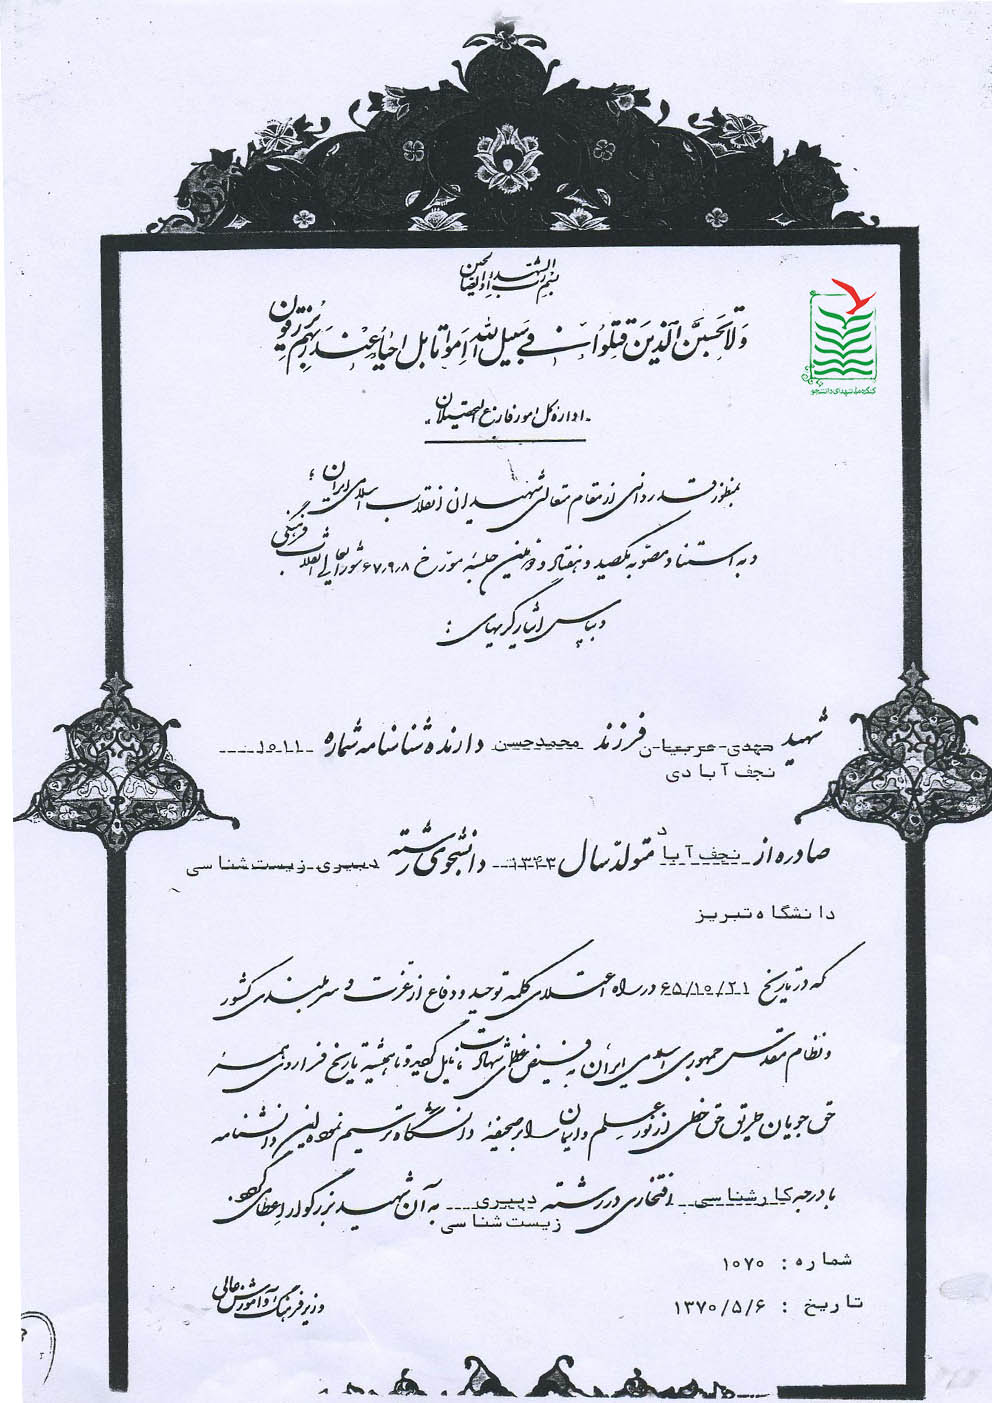 بسم رب الشهداء و الصالحین
ولا تحسبن الذین قتلوا فی سبیل الله امواتا بل احیاء عند ربهم یرزقون
کنگره ملی شهدای دانشجو
اداره کل امور فارغ التحصیلان
بمنظور قدردانی از مقام متعالی شهیدان انقلاب اسلامی ایران ؛
و به استناد مصوبه یکصد و هفتاد و دومین جلسه مورخ ۶۷٫۹٫۸ شورای عالی انقلاب فرهنگی
و بپاس ایثارگریهای :
شهید مهدی عربیان فرزند محمدحسن دارنده شناسنامه شماره ۱۰۱۱
نجف آبادی
صادره از نجف آباد متولد سال ۱۳۴۳ دانشجوی رشته دبیری زیست شناسی
دانشگاه تبریز
که در تاریخ ۶۵/۱۰/۲۱ در راه اعتلای کلمه توحید و دفاع از عزت و سربلندی کشور
و نظام مقدس جمهوری اسلامی ایران به فیض عظمای شهادت نایل گردید و تا همیشه تاریخ فراروی همه
حق جویان طریق حق خطی از نور علم و ایمان را بر صحیفه دانشگاه ترسیم نموده این دانشنامه
با درجه کارشناسی افتخاری در رشته دبیری به آن شهید بزرگوار اعطا می گردد.
زیست شناسی
شماره : ۱۰۷۰
تاریخ : ۱۳۷۰/۵/۶
وزیر فرهنگ و آموزش عالی